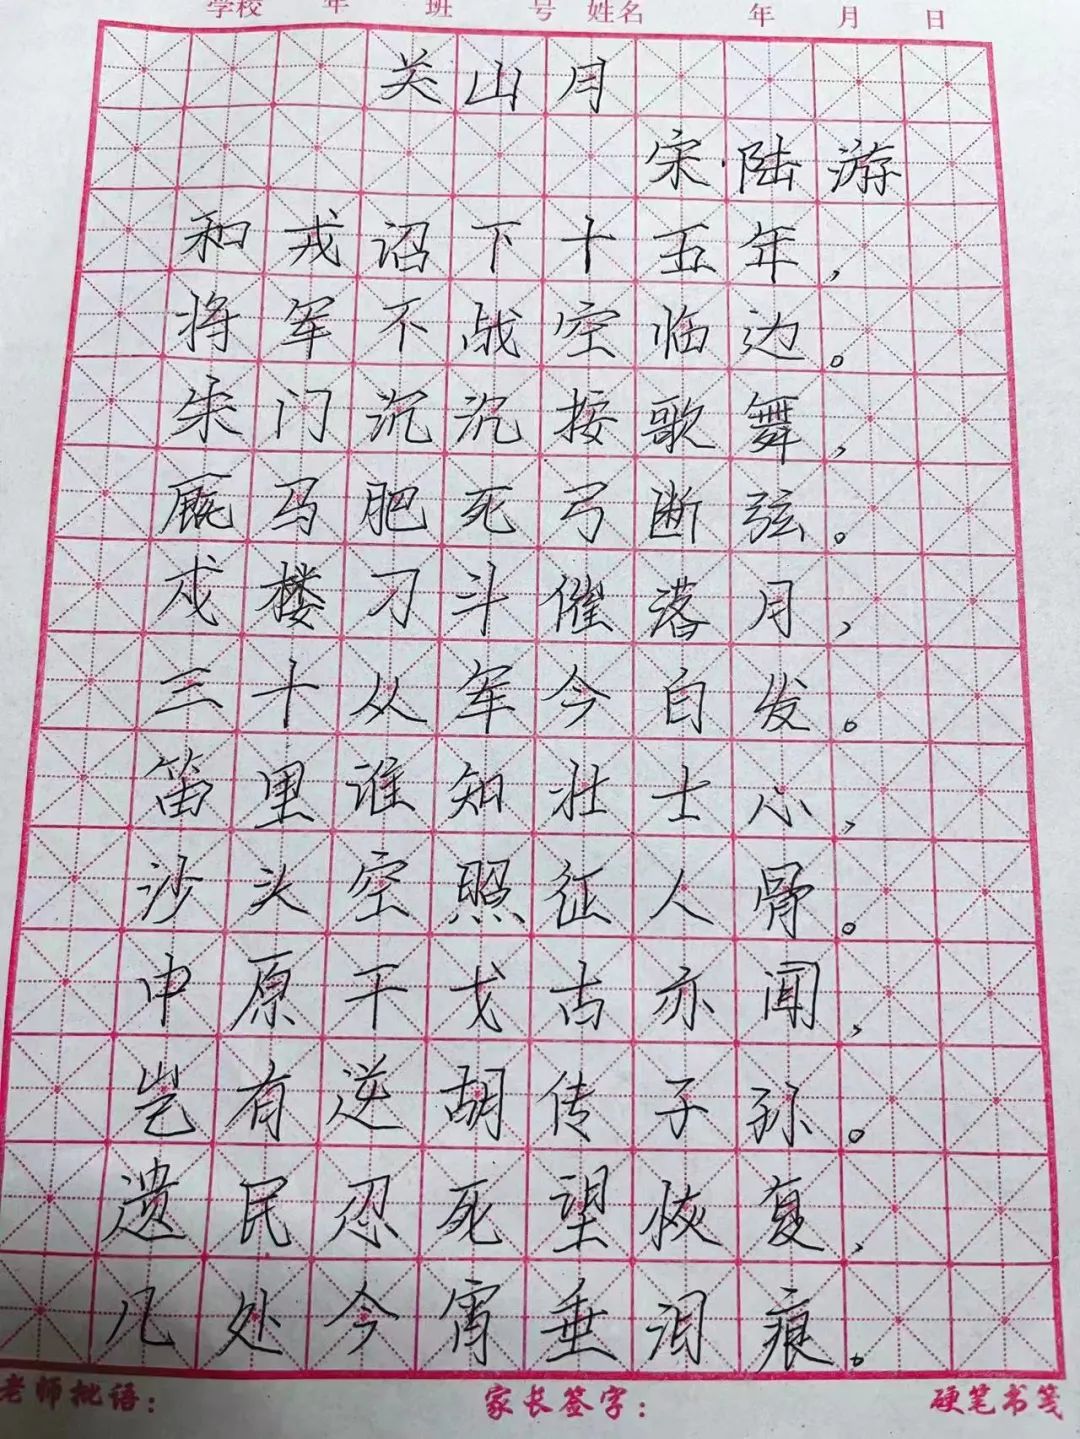 学校 年 班 号 姓名 年 月 日
关山月
宋·陆游
和戎诏下十五年，
将军不战空临边。
朱门沉沉按歌舞，
厩马肥死弓断弦。
戍楼刁斗催落月，
三十从军今白发。
笛里谁知壮士心，
沙头空照征人骨。
中原干戈古亦闻，
岂有逆胡传子孙。
遗民忍死望恢复，
几处今宵垂泪痕。
老师批语： 家长签字： 硬笔书笺